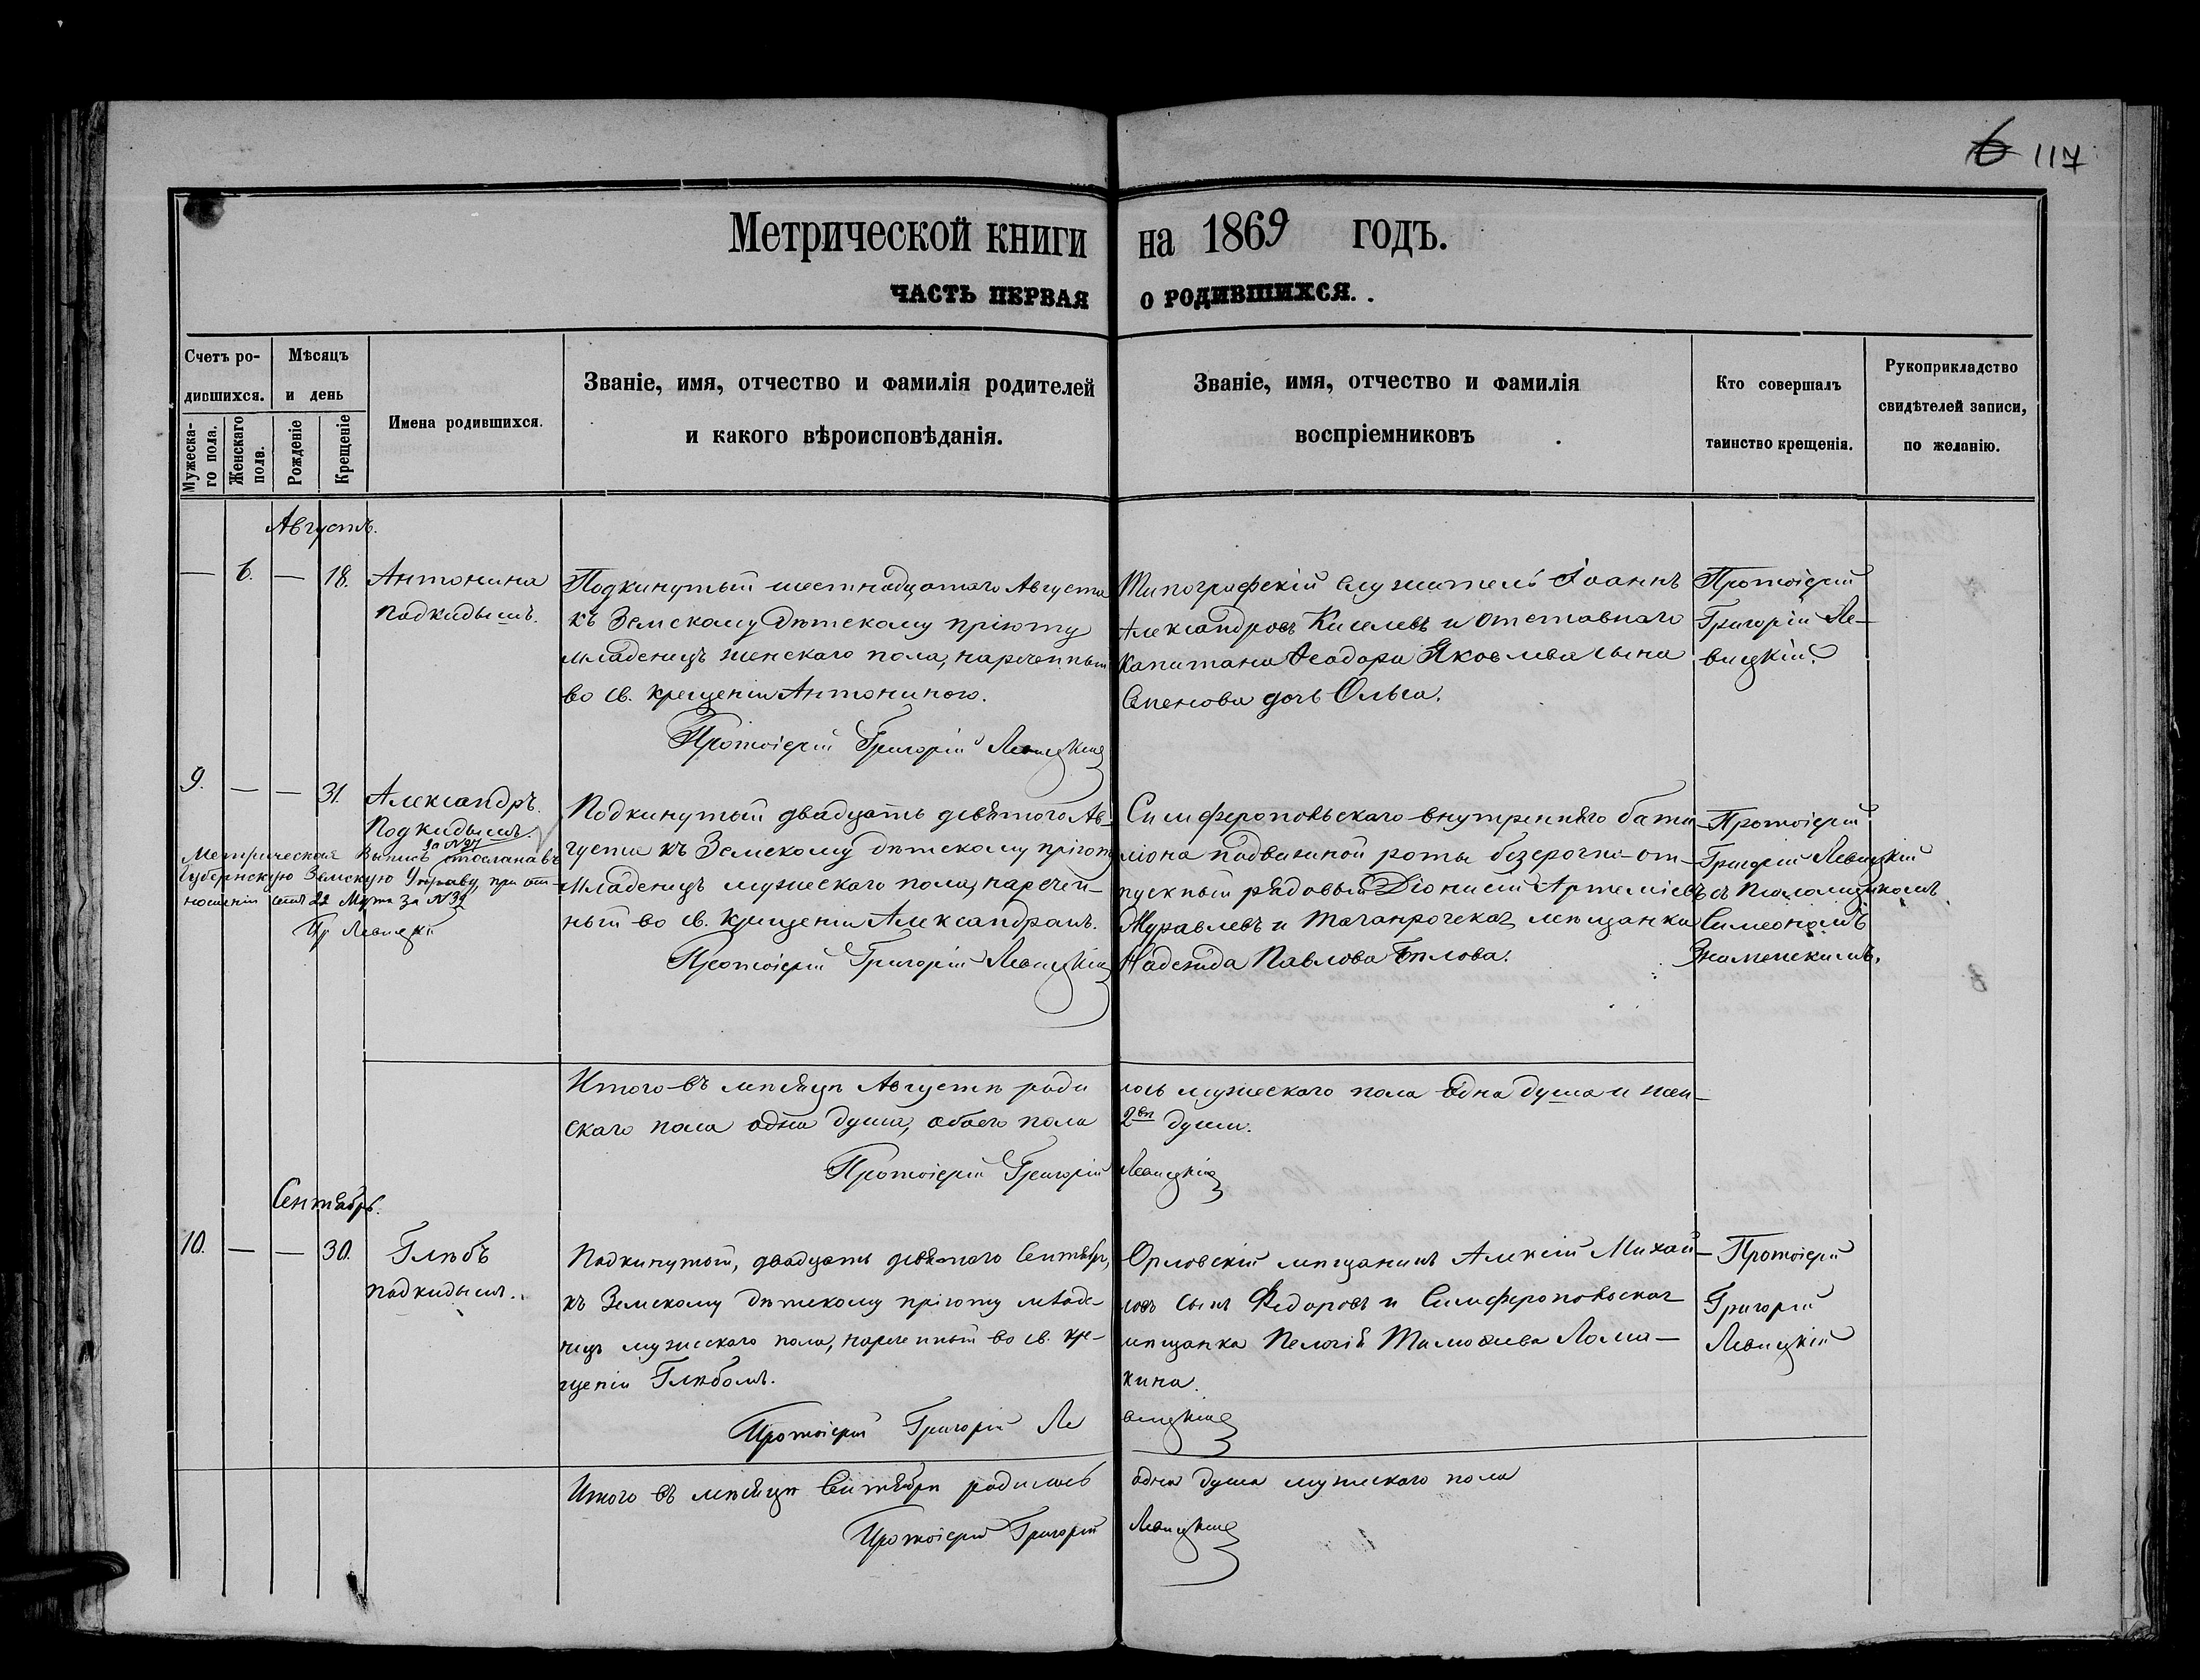 6 117
Метрической книги на 1869 годъ.
ЧАСТЬ ПЕРВАЯ О РОДИВШИХСЯ.
Счетъ ро-
дившихся.
Мужеска-
го пола.
Женскаго
пола.
Мѣсяцъ
и день
Рожденіе
Крещеніе
Имена родившихся.
Званіе, имя, отчество и фамилія родителей
и какого вѣроисповѣданія.
Званіе, имя, отчество и фамилія
воспріемниковъ
Кто совершалъ
таинство крещенія.
Рукоприкладство
свидѣтелей записи,
по желанію.
Августъ.
— 6. — 18.
Антонина
подкидышъ.
Подкинутый шестнадцатаго Августа
къ Земскому дѣтскому пріюту
младенецъ женскаго пола, нареченный
во св. крещеніи Антониною.
Протоіерей Григорій Левицкій
Типографскій служитель Іоаннъ
Александровъ Киселевъ и отставнаго
Капитана Ѳеодора Яковлева сына
дочь Ольга.
Протоіерей
Григорій Ле-
вицкій.
9. — — 31.
Александръ.
Подкидышъ.
за №27
Метрическая выпись отослана въ
Губернскую Земскую Управу, при от-
ношеніи отъ 22 Марта за №39
Пр Левицкій
Подкинутый двадцать девятого Ав-
густа къ Земскому дѣтскому пріюту
младенецъ мужескаго пола, наречен-
ный во св. крещеніи Александромъ.
Протоіерей Григорій Левицкій
Симферопольскаго внутренняго бата-
ліона подвижной роты безсрочно-от-
пускный рядовый Діонисій Артеміевъ
Журавлевъ и Таганрогская мѣщанка
Надежда Павлова Бѣлова.
Протоіерей
Григорій Левицкій
съ Псаломщикомъ
Симеономъ
Знаменскимъ.
Итого въ мѣсяцѣ Августѣ роди
лось мужескаго пола одна душа и жен-
скаго пола одна душа, обоего пола
2вѣ души.
Протоіерей Григорій Левицкій
Сентябрь.
10. — — 30.
Глѣбъ
подкидышъ.
Подкинутый, двадцать девятаго Сентября,
къ Земскому дѣтскому пріюту младе-
нецъ мужескаго пола, нареченный во св. кре-
щеніи Глѣбомъ.
Протоіерей Григорій Ле
вицкій
Орловскій мѣщанинъ Алексій Михай-
ловъ сынъ Ѳедоровъ и Симферопольская
мѣщанка Пелагія Тимоѳеева Лома-
кина.
Протоіерей
Григорій
Левицкій
Итого въ мѣсяцѣ Сентябрѣ родилась
одна душа мужескаго пола
Протоіерей Григорій Левицкій